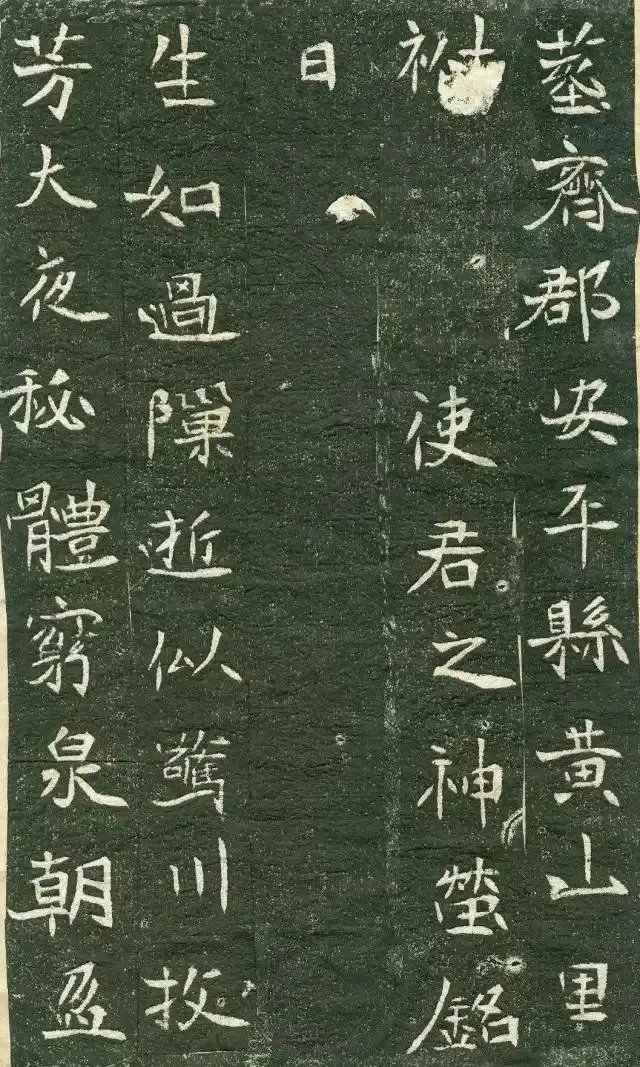 塟齊郡安平縣黃山里
祔使君之神塋銘
日
生如過隟逝似驚川收
芳大夜秘體窮泉朝盈